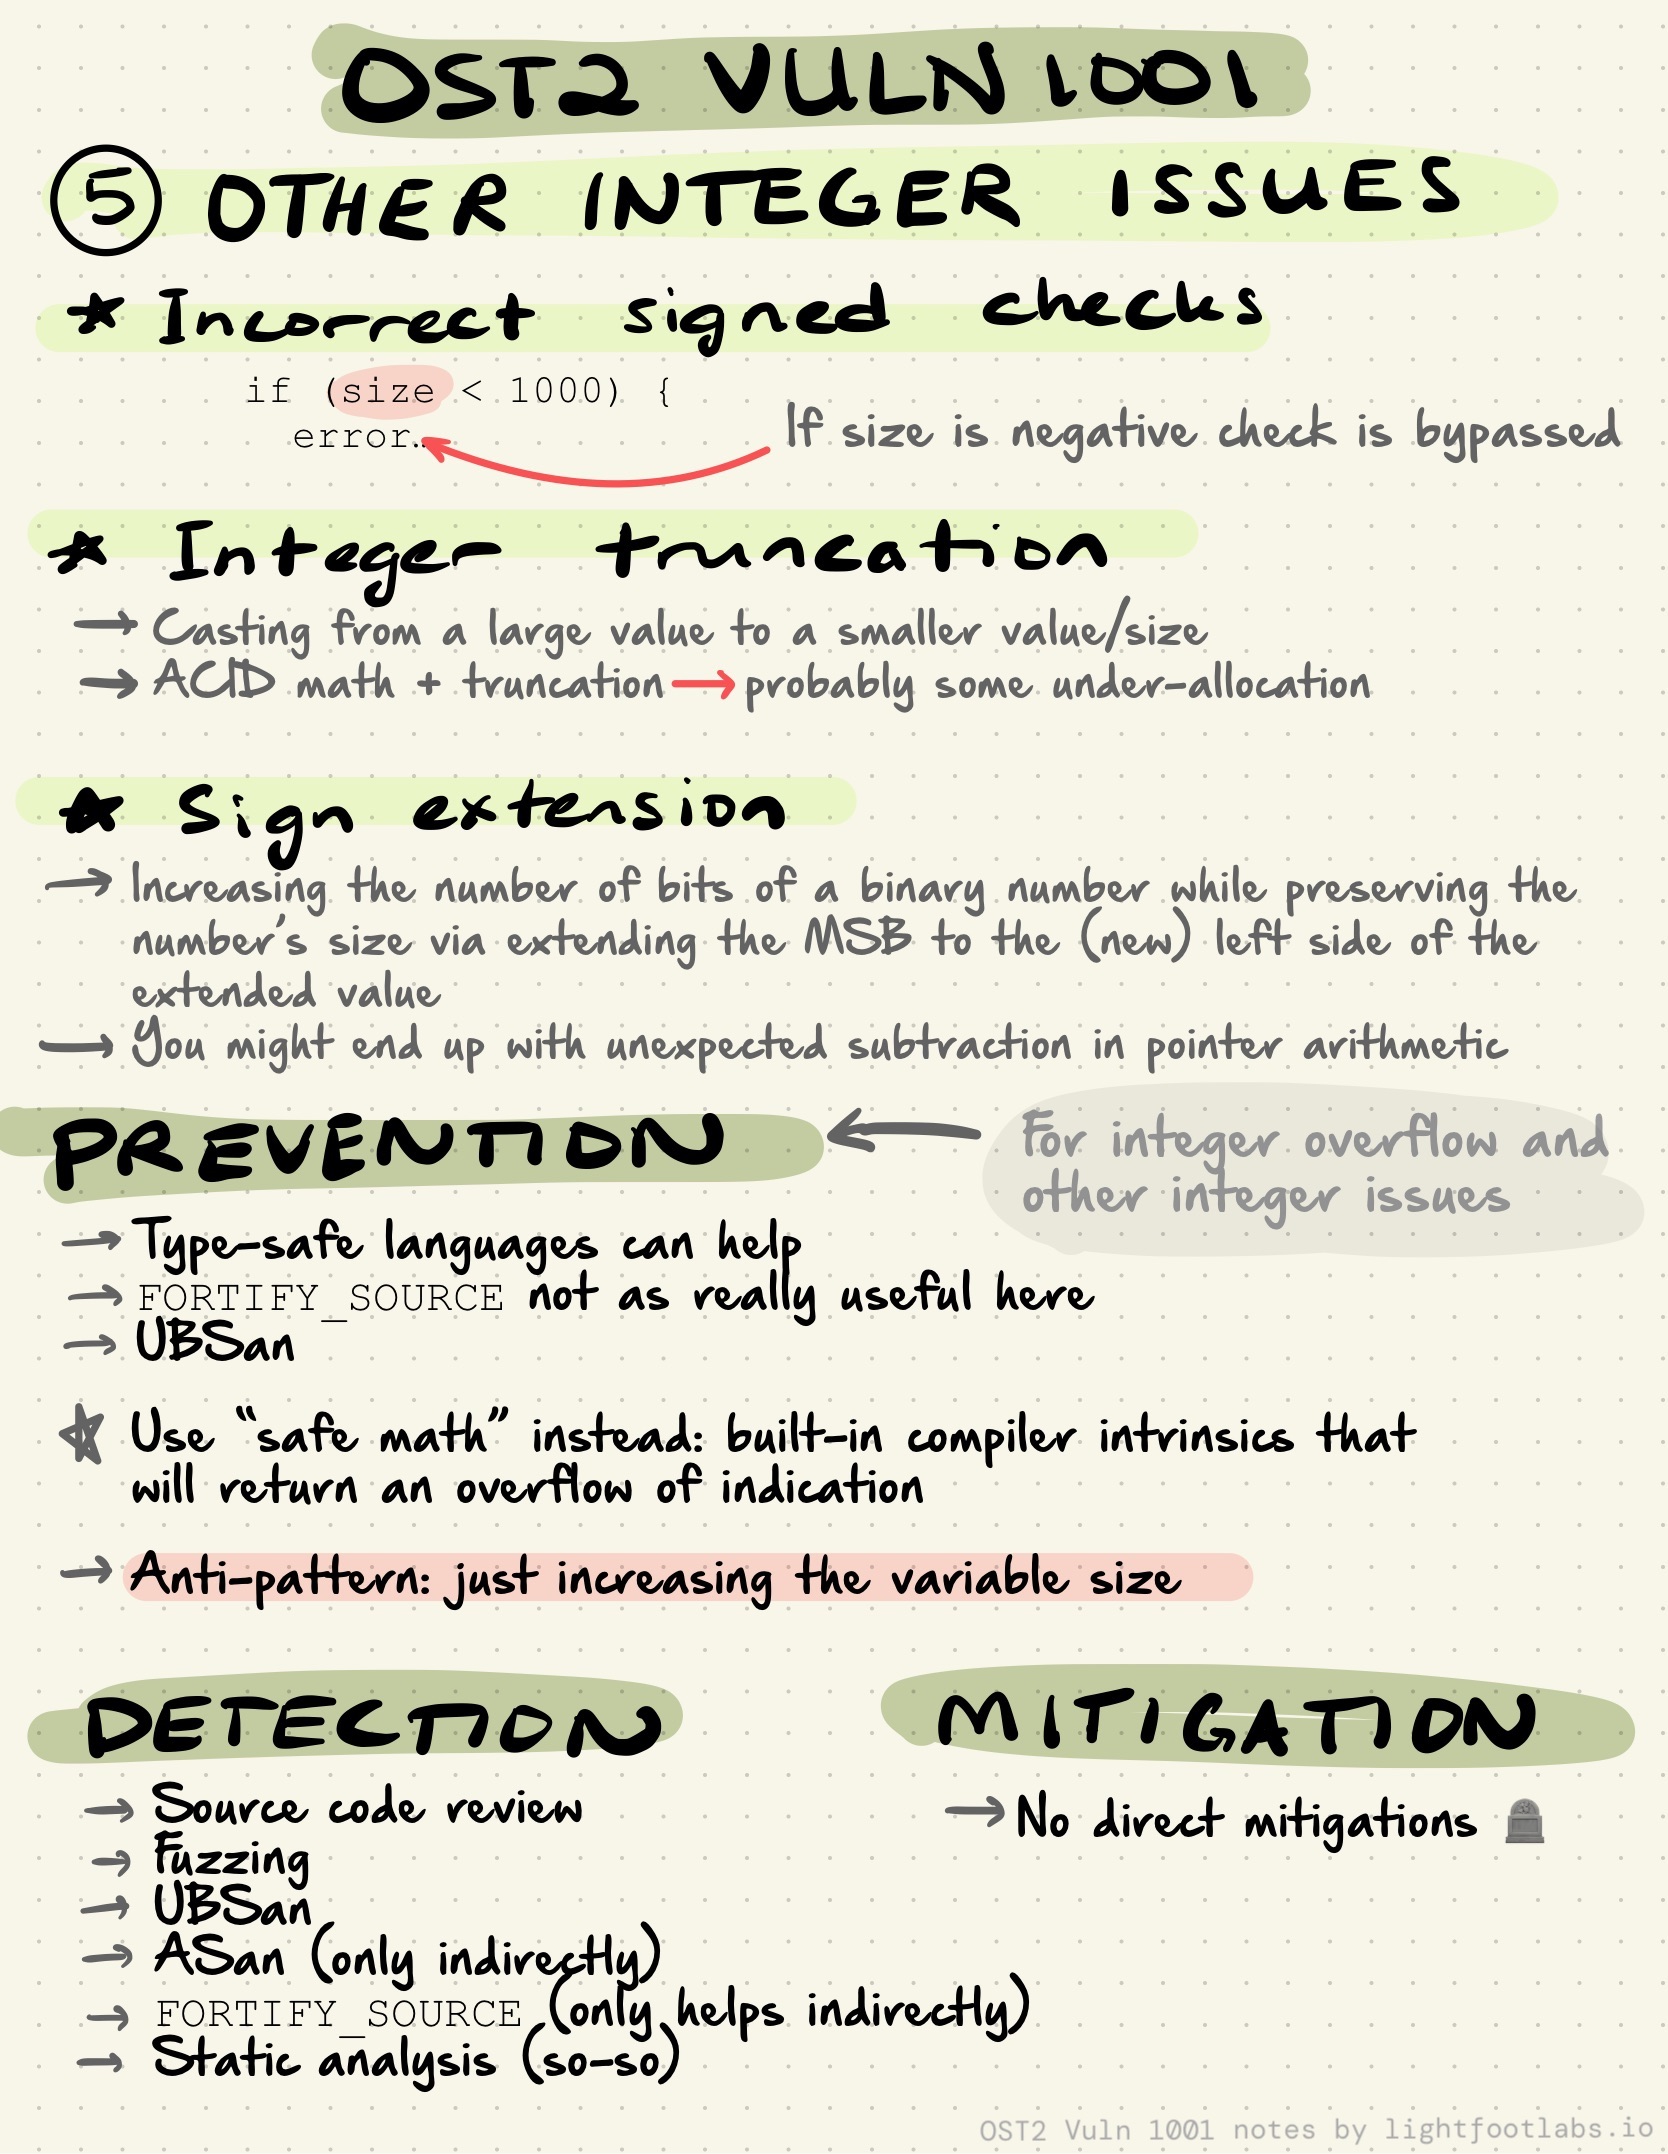 OST2 VULN 1001
5 OTHER INTEGER ISSUES
★ Incorrect signed checks
if (size < 1000) {
error…
If size is negative check is bypassed
★ Integer truncation
→ Casting from a large value to a smaller value/size
→ ACID math + truncation → probably some under-allocation
★ Sign extension
→ Increasing the number of bits of a binary number while preserving the
number's size via extending the MSB to the (new) left side of the
extended value
→ You might end up with unexpected subtraction in pointer arithmetic
PREVENTION ←
For integer overflow and
other integer issues
→ Type-safe languages can help
→ FORTIFY_SOURCE not as really useful here
→ UBSan
☆ Use “safe math” instead: built-in compiler intrinsics that
will return an overflow of indication
→ Anti-pattern: just increasing the variable size
DETECTION
→ Source code review
→ Fuzzing
→ UBSan
→ ASan (only indirectly)
→ FORTIFY_SOURCE (only helps indirectly)
→ Static analysis (so-so)
MITIGATION
→ No direct mitigations 🪦
OST2 Vuln 1001 notes by lightfootlabs.io